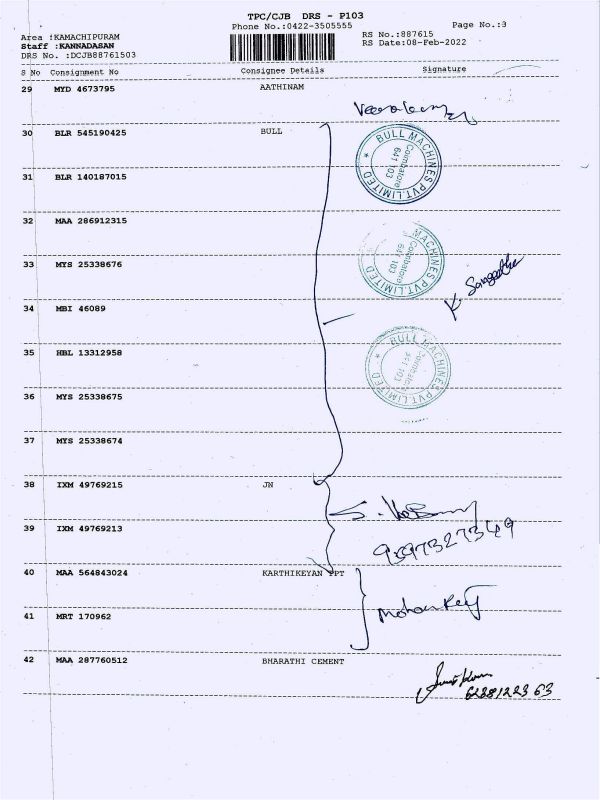 TPC/CJB DRS - P103
Phone No.:0422-3505555
Page No.:3
Area :KAMACHIPURAM
RS No.:887615
Staff :KANNADASAN
RS Date:08-Feb-2022
DRS No. :DCJB88761503
S No Consignment No Consignee Details Signature
29 MYD 4673795 AATHINAM
30 BLR 545190425 BULL
BULL MACHINES PVT.LIMITED
Coimbatore
641 103
31 BLR 140187015
32 MAA 286912315
MACHINES PVT.LIMITED
Coimbatore
641 103
33 MYS 25338676
K. Sangeetha
34 MBI 46089
35 HBL 13312958
BULL MACHINES PVT.LIMITED
Coimbatore
641 103
36 MYS 25338675
37 MYS 25338674
38 IXM 49769215 JN
39 IXM 49769213
40 MAA 564843024 KARTHIKEYAN PPT
41 MRT 170962
42 MAA 287760512 BHARATHI CEMENT